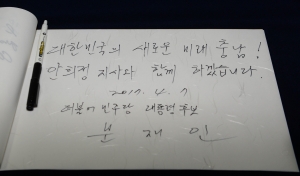 대한민국의 새로운 미래 충남!
안희정 지사와 함께 하겠습니다.
2017. 4. 7
더불어 민주당 대통령후보
문 재 인